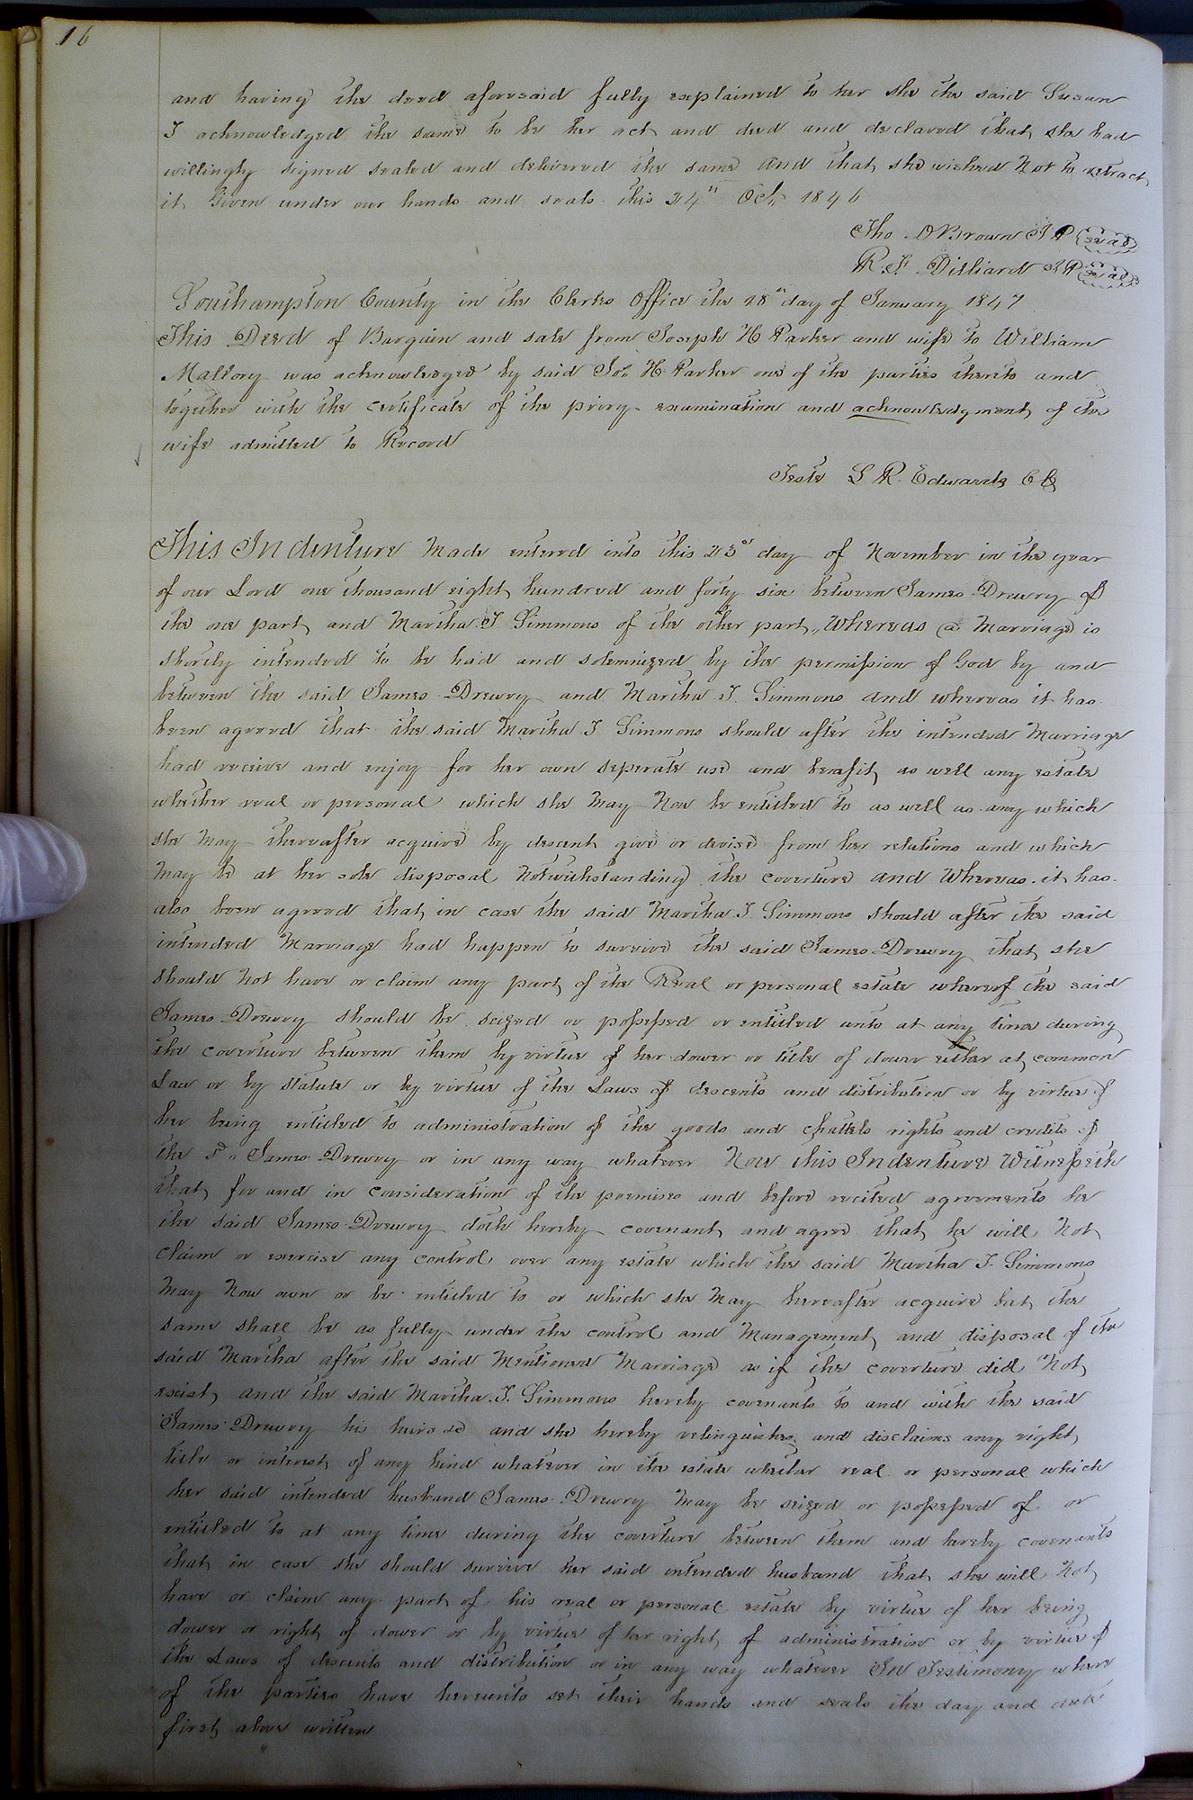 16
and having the deed aforesaid fully explained to her she the said Susan
I acknowledged the same to be her act and deed and declared that she had
willingly signed sealed and delivered the same and that she wished not to retract
it Given under our hands and seals this 24th Oct 1846
Tho D Brown JP seal
R. F. Dilliard JP seal
Southampton County in the Clerks Office the 18th day of January 1847
This Deed of Bargain and sale from Joseph H Parker and wife to William
Mallory was acknowledged by said Jos H Parker one of the parties thereto and
together with the certificate of the privy examination and acknowledgment of the
wife admitted to Record
Teste L R. Edwards Clk
This Indenture Made entered into this 23rd day of November in the year
of our Lord one thousand eight hundred and forty six between James Drewry of
the one part and Martha J Simmons of the other part, Whereas a Marriage is
shortly intended to be had and solemnized by the permission of God by and
between the said James Drewry and Martha J. Simmons and whereas it has
been agreed that the said Martha J Simmons should after the intended Marriage
had receive and enjoy for her own seperate use and benefit as well any estate
whether real or personal which she May Now be entitled to as well as any which
she May thereafter acquire by descent give or devise from her relations and which
May be at her sole disposal Notwithstanding the coverture and Whereas it has
also been agreed that in case the said Martha J. Simmons should after the said
intended Marriage had happen to survive the said James Drewry that she
should Not have or claim any part of the Real or personal estate whereof the said
James Drewry should be seized or possessed or entitled unto at any time during
the coverture between them by virtue of her dower or title of dower either at common
Law or by statute or by virtue of the Laws of descents and distribution or by virtue of
her being entitled to administration of the goods and chattels rights and credits of
the sd James Drewry or in any way whatever Now this Indenture Witnesseth
that for and in consideration of the premises and before recited agreements he
the said James Drewry doth hereby covenant and agree that he will Not
claim or exercise any control over any estate which the said Martha J. Simmons
May Now own or be entitled to or which she May hereafter acquire but the
same shall be as fully under the control and Management and disposal of the
said Martha after the said Mentioned Marriage as if the coverture did Not
exist and the said Martha J. Simmons hereby covenants to and with the said
James Drewry his heirs &c and she hereby relinquishes and disclaims any right
title or interest of any kind whatever in the estate whether real or personal which
her said intended husband James Drewry May be seized or possessed of or
entitled to at any time during the coverture between them and hereby covenants
that in case she should survive her said intended husband that she will Not
have or claim any part of his real or personal estate by virtue of her being
dower or right of dower or by virtue of her right of administration or by virtue of
the Laws of descents and distribution or in any way whatever In Testimony where
of the parties have hereunto set their hands and seals the day and date
first above written